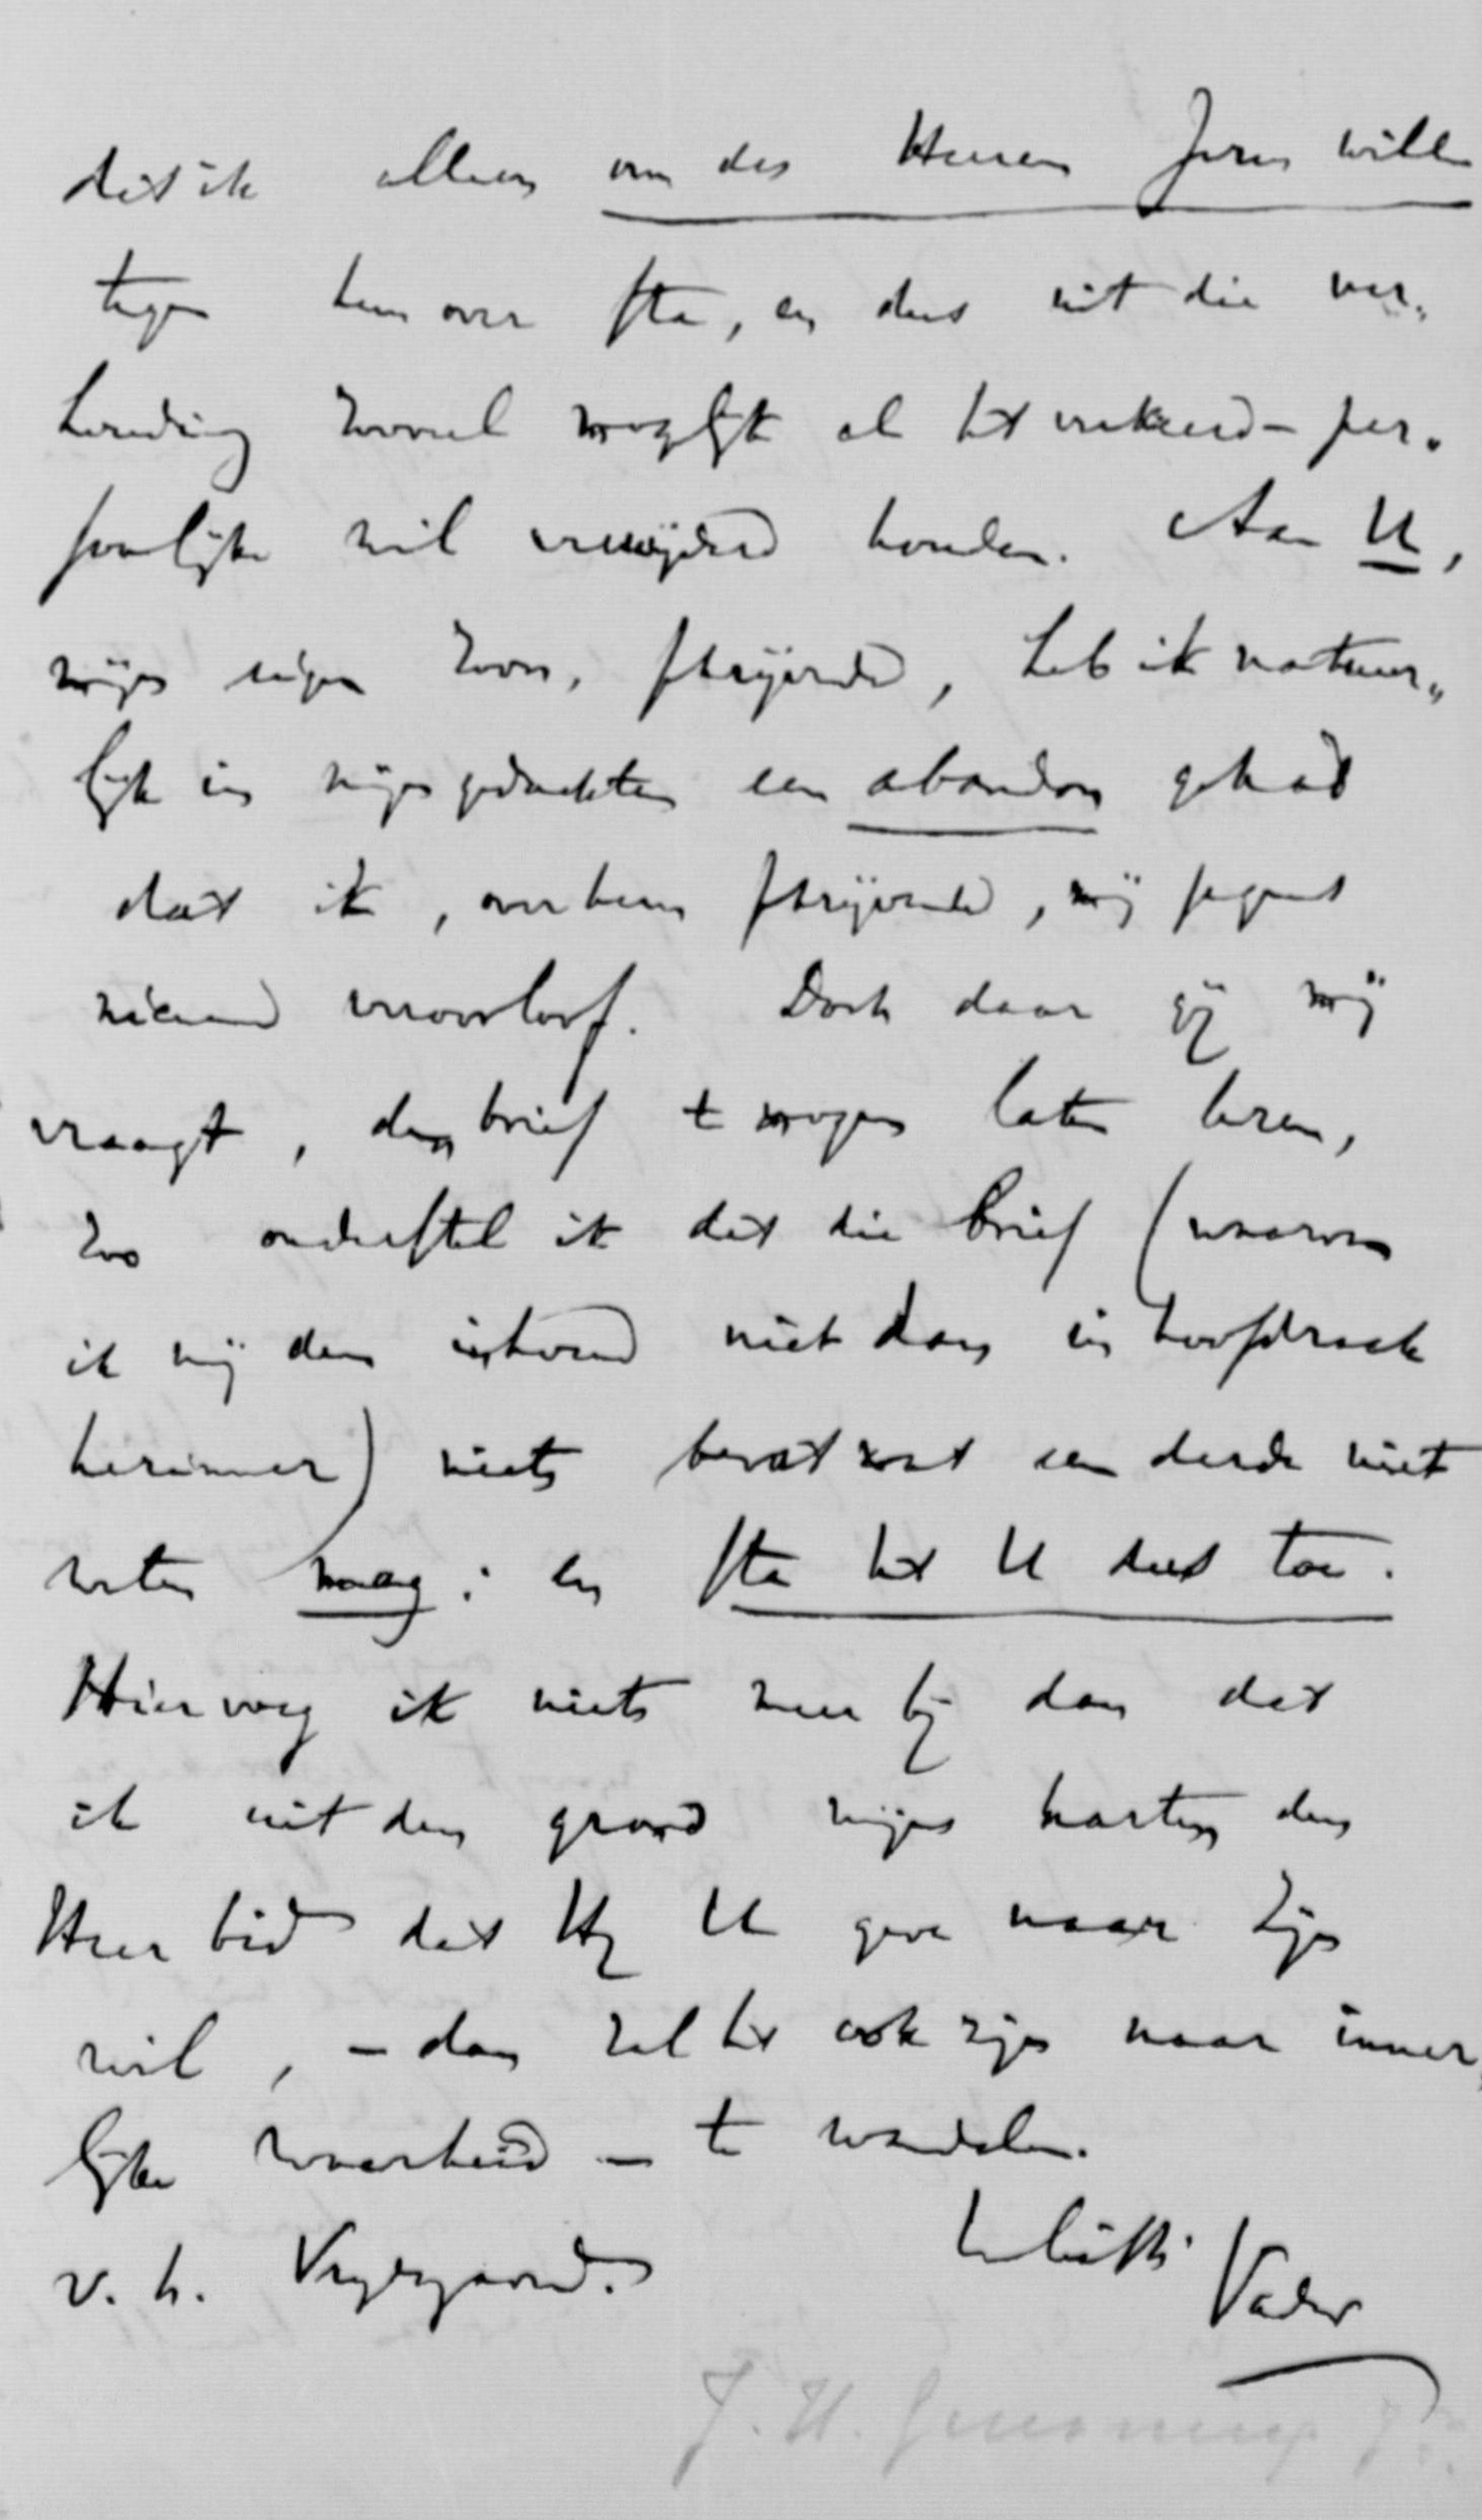 dat ik alleen om des Heeren Jezus wille
tegen hem over sta, en dus uit die ver„
houding zooveel mogelijk al het verkeerd-per„
soonlijke wil verwijderd houden. Aan U,
mijn eigen zoon, schrijvende, heb ik natuur„
lijk in mijn gedachten een abandon gehad
dat ik, over hem schrijvende, mij jegens
niemand veroorloof. Doch daar gij mij
vraagt, den brief te mogen laten lezen,
zoo onderstel ik dat die brief (waarvan
ik mij den inhoud niet dan in hoofdzaak
herinner) niets bevat wat een derde niet
weten mag: en sta het U dus toe.
Hier voeg ik niets meer bij dan dat
ik uit den grond mijns harten den
Heer bid dat Hij U geve naar Zijn
wil, – dan zal het ook zijn naar inner„
lijke waarheid – te wandelen.
v. h. Vrijdagavond.
Vader
J. H. Gunning Jr.